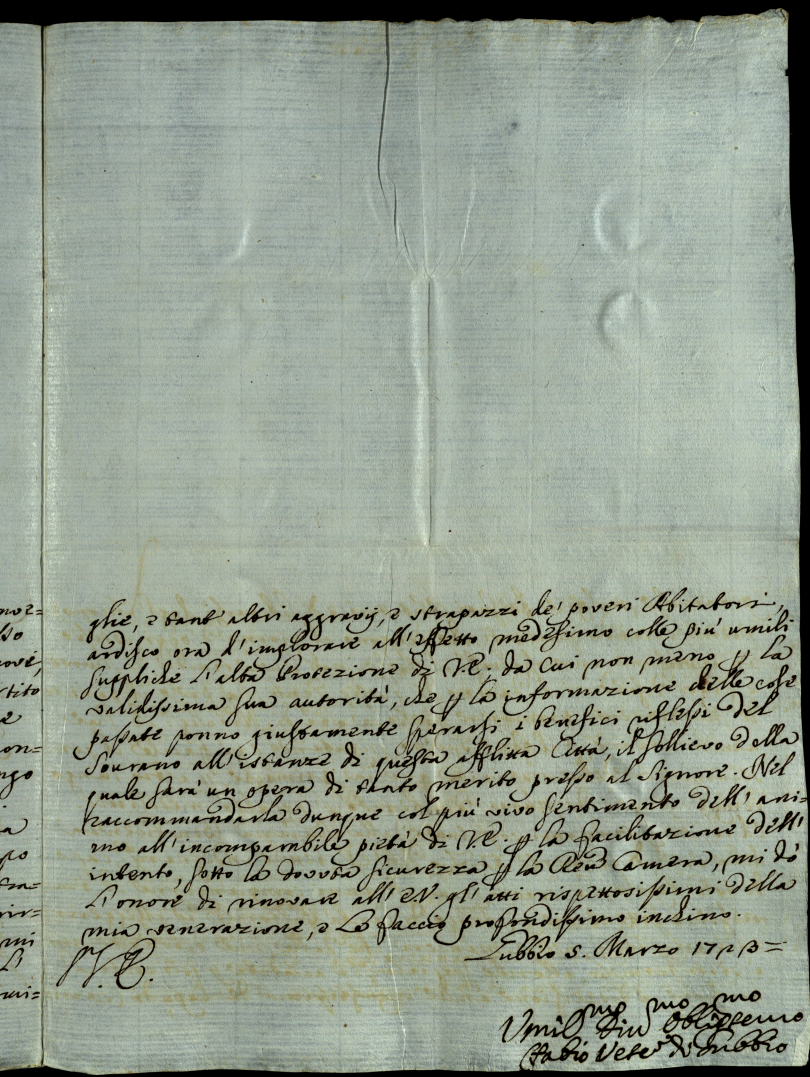 glie, e tant' altri aggravij, e strapazzi de' poveri Abitatori,
ardisco ora d'implorare all'effetto medesimo colle più umili
suppliche l'alta Protezione di V.E. da cui non meno p la
validissima sua autorità, che p la informazione delle cose
passate ponno giustamente sperarsi i benefici riflessi del
Sovrano all'istanze di questa afflitta Città, il sollievo della
quale sarà un opera di tanto merito presso al Signore. Nel
raccommandarla dunque col più vivo sentimento dell' ani-
mo all'incomparabile pietà di V.E. p la facilitazione dell'
intento, sotto la dovuta sicurezza p la Reve Camera, mi dò
l'onore di rinovare all'E.V. gl'atti rispettosissimi della
mia venerazione, e Le faccio profondissimo inchino.
Gubbio 5. Marzo 1723=
V.E.
Umilmo Divmo Obligmo Servo
Fabio Vesco di Gubbio
noe=
sso
rtito
e
on=
ngo
i
a
po
rir=
mi